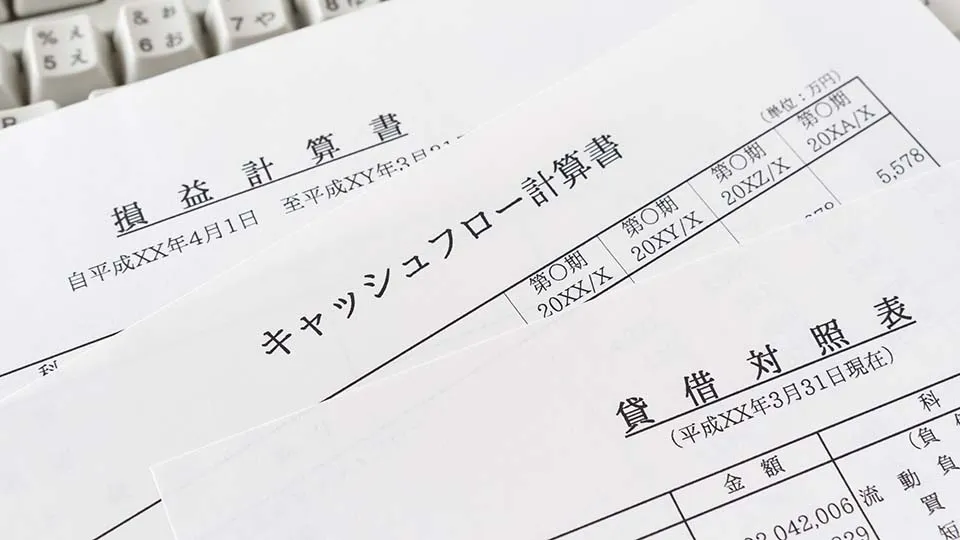 % え
5 え
& ぉ
6 お
7 や
8
損益計算書
自平成XX年4月1日 至平成XY年3月31
科
キャッシュフロー計算書
(単位：万円)
第〇期 第〇期 第〇期 第〇期
20XX/X 20XY/X 20XZ/X 20XA/X
5,578
貸借対照表
(平成XX年3月31日現在)
金額 科
(負
2,042,006 流動負
買
短